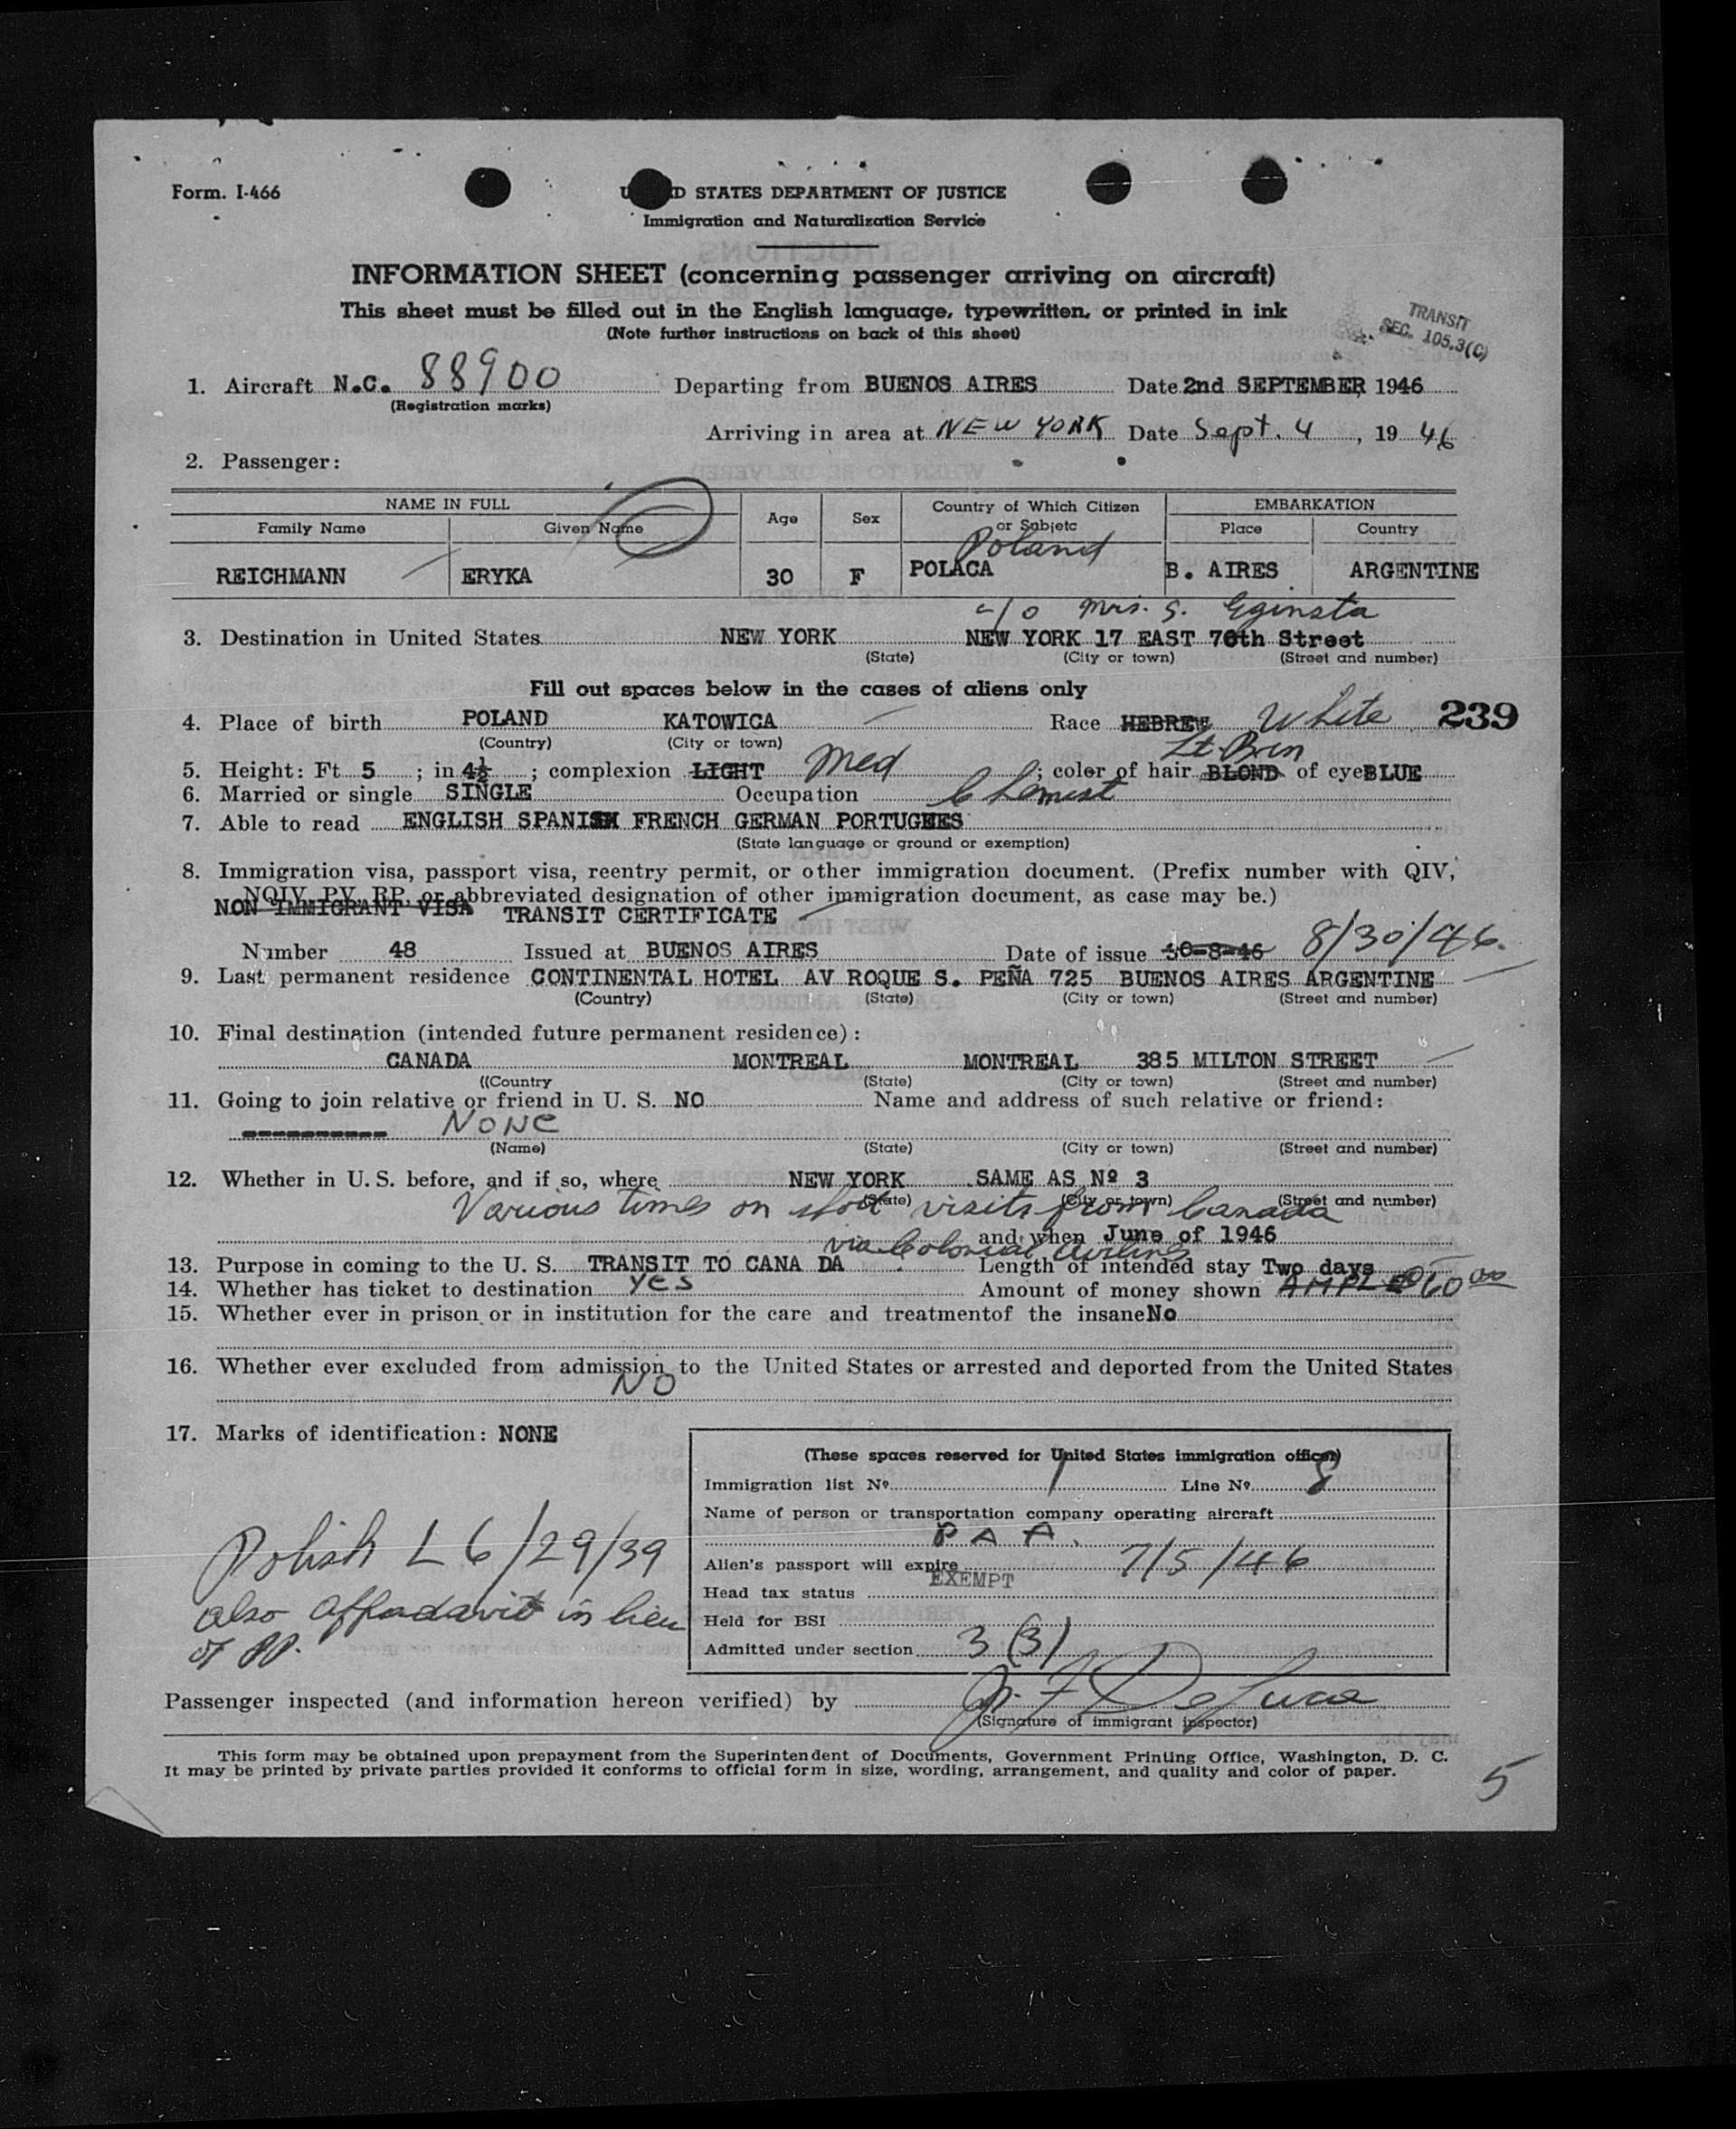 Form. I-466
UNITED STATES DEPARTMENT OF JUSTICE
Immigration and Naturalization Service
INFORMATION SHEET (concerning passenger arriving on aircraft)
This sheet must be filled out in the English language, typewritten, or printed in ink
(Note further instructions on back of this sheet)
TRANSIT
SEC. 105.3(C)
1. Aircraft N.C. 88900 Departing from BUENOS AIRES Date 2nd SEPTEMBER, 1946
(Registration marks)
Arriving in area at NEW YORK Date Sept. 4, 1946
2. Passenger:
NAME IN FULL Age Sex Country of Which Citizen EMBARKATION
Family Name Given Name or Subjetc Place Country
Poland
REICHMANN ERYKA 30 F POLACA B. AIRES ARGENTINE
c/o Mrs. S. Eginsta
3. Destination in United States NEW YORK NEW YORK 17 EAST 70th Street
(State) (City or town) (Street and number)
Fill out spaces below in the cases of aliens only
4. Place of birth POLAND KATOWICA Race HEBREW White 239
(Country) (City or town)
Lt Brn
5. Height: Ft 5 ; in 4½ ; complexion LIGHT Med ; color of hair BLOND of eye BLUE
6. Married or single SINGLE Occupation Chemist
7. Able to read ENGLISH SPANISH FRENCH GERMAN PORTUGUES
(State language or ground or exemption)
8. Immigration visa, passport visa, reentry permit, or other immigration document. (Prefix number with QIV,
NQIV, PV, RP, or abbreviated designation of other immigration document, as case may be.)
NON IMMIGRANT VISA TRANSIT CERTIFICATE
Number 48 Issued at BUENOS AIRES Date of issue 30-8-46 8/30/46.
9. Last permanent residence CONTINENTAL HOTEL AV ROQUE S. PEÑA 725 BUENOS AIRES ARGENTINE
(Country) (State) (City or town) (Street and number)
10. Final destination (intended future permanent residence):
CANADA MONTREAL MONTREAL 385 MILTON STREET
((Country (State) (City or town) (Street and number)
11. Going to join relative or friend in U. S. NO Name and address of such relative or friend:
---------- NONE
(Name) (State) (City or town) (Street and number)
12. Whether in U. S. before, and if so, where NEW YORK SAME AS Nº 3
(State) (City or town) (Street and number)
Various times on short visits from Canada
and when June of 1946
via Colonial Airlines
13. Purpose in coming to the U. S. TRANSIT TO CANA DA Length of intended stay Two days
14. Whether has ticket to destination YES Amount of money shown AMPLE 60 00
15. Whether ever in prison or in institution for the care and treatmentof the insane No
16. Whether ever excluded from admission to the United States or arrested and deported from the United States
NO
17. Marks of identification: NONE
(These spaces reserved for United States immigration officer)
Immigration list Nº 1 Line Nº 8
Name of person or transportation company operating aircraft
P A A.
Alien's passport will expire 7/5/46
Head tax status EXEMPT
Held for BSI
Admitted under section 3 (3)
Polish L 6/29/39
also affadavit in lieu
of PP.
Passenger inspected (and information hereon verified) by J. F. DeLuca
(Signature of immigrant inspector)
This form may be obtained upon prepayment from the Superintendent of Documents, Government Printing Office, Washington, D. C.
It may be printed by private parties provided it conforms to official form in size, wording, arrangement, and quality and color of paper.
5